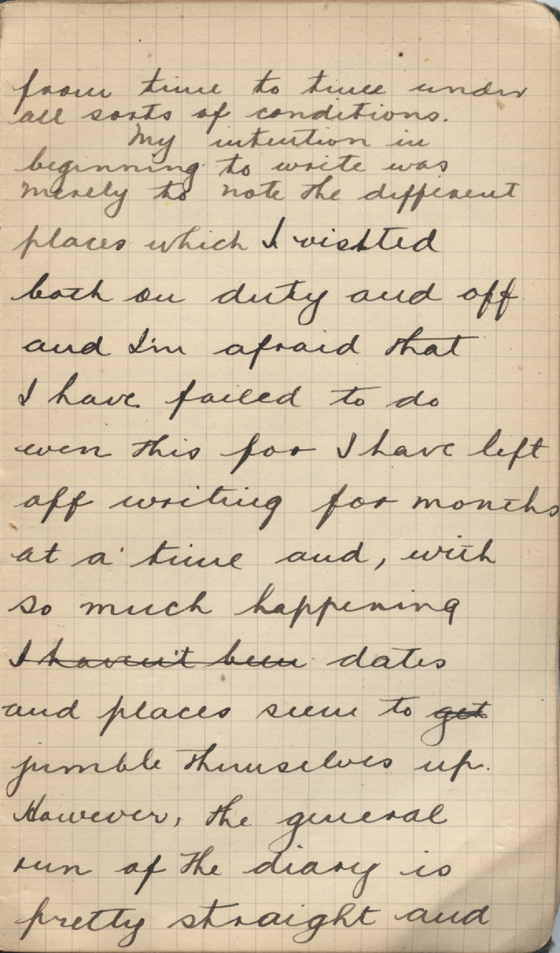 from time to time under
all sorts of conditions.
My intention in
beginning to write was
merely to note the different
places which I visited
both on duty and off
and I'm afraid that
I have failed to do
even this for I have left
off writing for months
at a time and, with
so much happening
I haven't been dates
and places seem to get
jumble themselves up.
However, the general
run of the diary is
pretty straight and